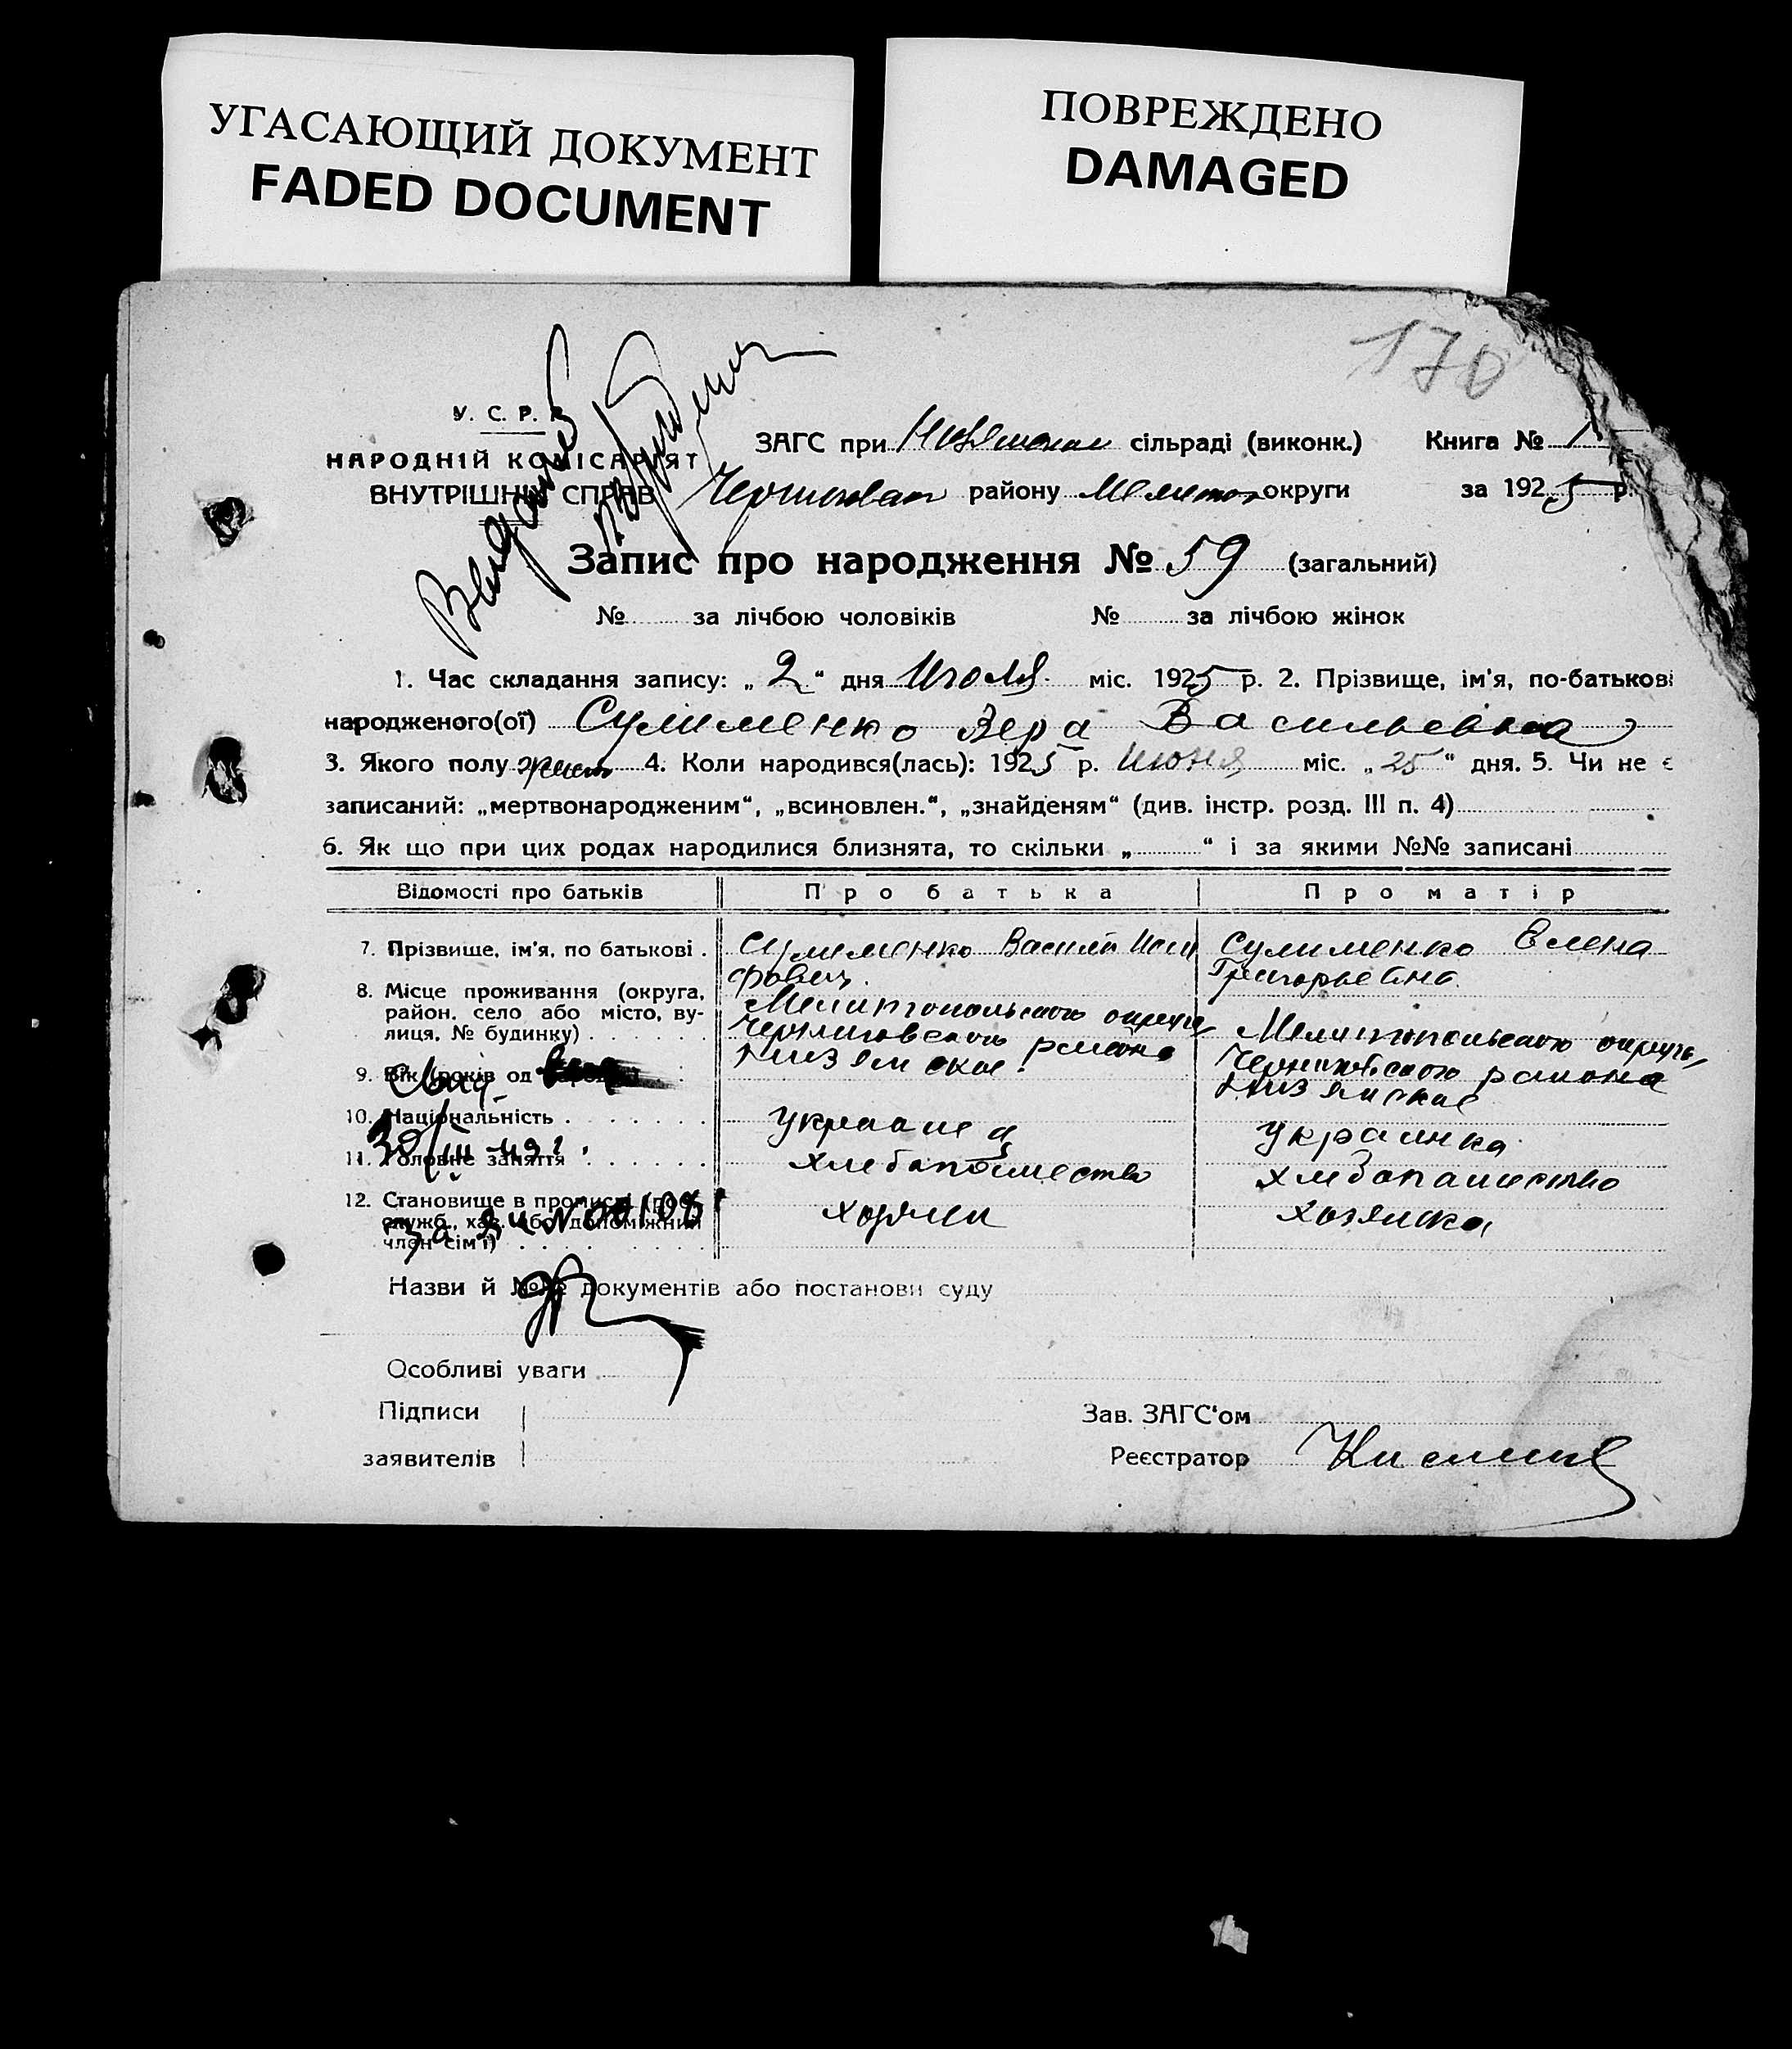 УГАСАЮЩИЙ ДОКУМЕНТ
FADED DOCUMENT
ПОВРЕЖДЕНО
DAMAGED
170
У. С. Р. Р.
НАРОДНІЙ КОМІСАРІЯТ
ВНУТРІШНІХ СПРАВ
ЗАГС при сільраді (виконк.) Книга № 1
району Мелитоп округи за 1925 р.
Запис про народження № 59 (загальний)
№ за лічбою чоловіків № за лічбою жінок
1. Час складання запису: „2“ дня Июля міс. 1925 р. 2. Прізвище, ім'я, по-батькові
народженого(ої) Сулименко Вера Васильевна
3. Якого полу женск 4. Коли народився(лась): 1925 р. Июня міс. „25“ дня. 5. Чи не є
записаний: „мертвонародженим“, „всиновлен.“, „знайденям“ (див. інстр. розд. III п. 4)
6. Як що при цих родах народилися близнята, то скільки „ “ і за якими №№ записані
Відомості про батьків Про батька Про матір
7. Прізвище, ім'я, по батькові . Сулименко Василий Иоси Сулименко Елена
фович. Григорьевна.
8. Місце проживання (округа, район, село або місто, вулиця, № будинку) Мелитопольского округа Мелитопольского округа,
Черниговского района Черниговского района
Низянское Низянское
9. Вік (років од
10. Національність Украинец Украинка
11. Головне заняття хлебопашество хлебопашество
12. Становище в промислі
служб., хаз. або допоміжний
член сім'ї) хозяин хозяйка
30/III-49 г.
Назви й №№ документів або постанови суду
Особливі уваги
Підписи Зав. ЗАГС'ом
заявителів Реєстратор